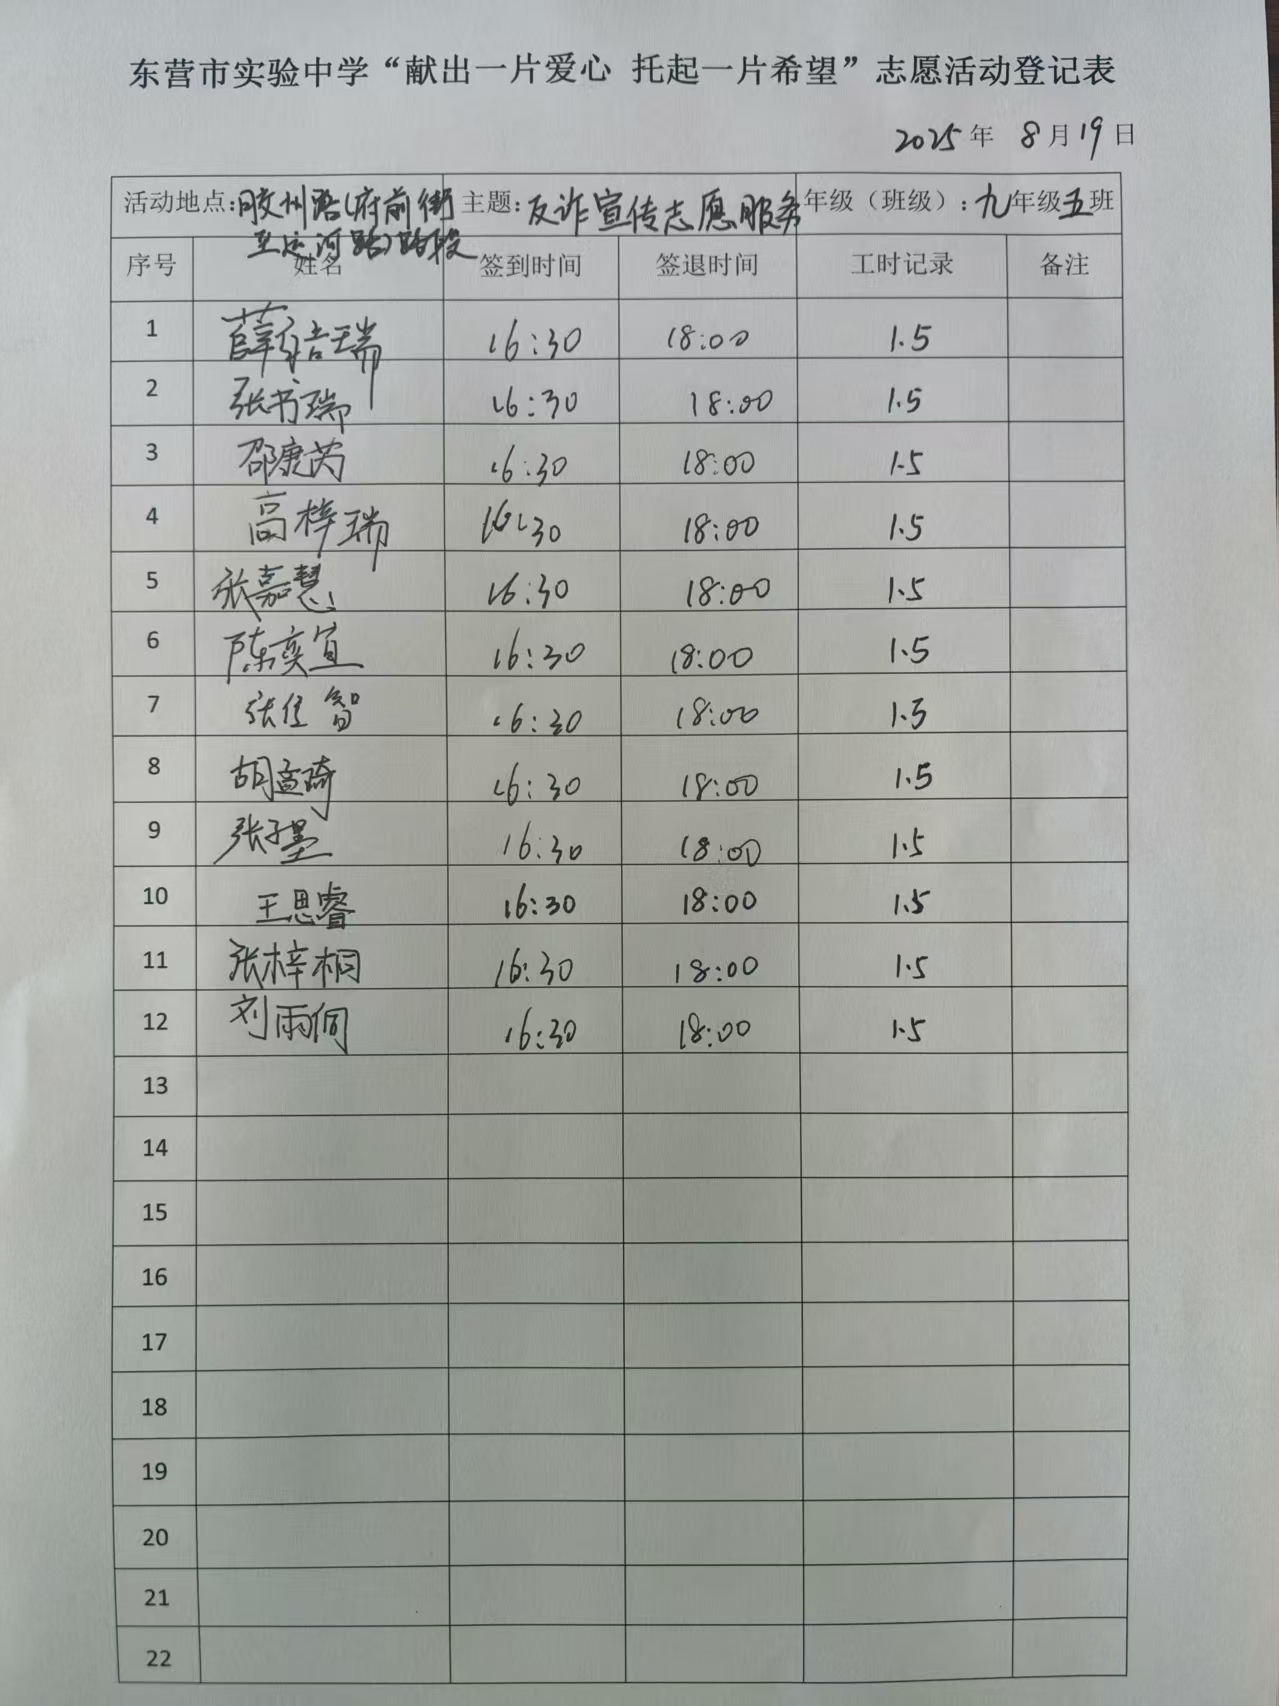 东营市实验中学“献出一片爱心 托起一片希望”志愿活动登记表
2025年 8月19日
活动地点:胶州路(府前街至运河路)路段 主题:反诈宣传志愿服务 年级（班级）:九年级五班
序号 姓名 签到时间 签退时间 工时记录 备注
1 薛梧瑞 16:30 18:00 1.5
2 张书瑞 16:30 18:00 1.5
3 邵康芮 16:30 18:00 1.5
4 高梓瑞 16:30 18:00 1.5
5 张嘉慧 16:30 18:00 1.5
6 陈奕宣 16:30 18:00 1.5
7 张佳智 16:30 18:00 1.5
8 胡孟琦 16:30 18:00 1.5
9 张子墨 16:30 18:00 1.5
10 王思睿 16:30 18:00 1.5
11 张梓桐 16:30 18:00 1.5
12 刘雨侗 16:30 18:00 1.5
13
14
15
16
17
18
19
20
21
22